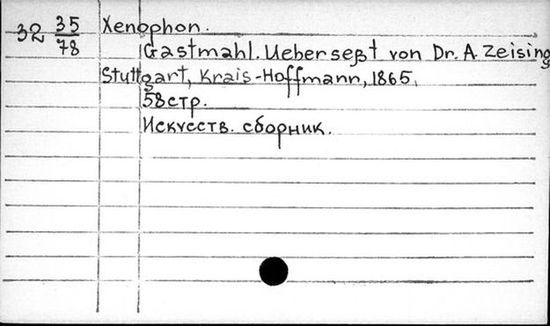 32 35/78 Xenophon.
Gastmahl. Ueberseßt von Dr. A. Zeising
Stuttgart, Krais-Hoffmann, 1865,
58стр.
Искусств. сборник.